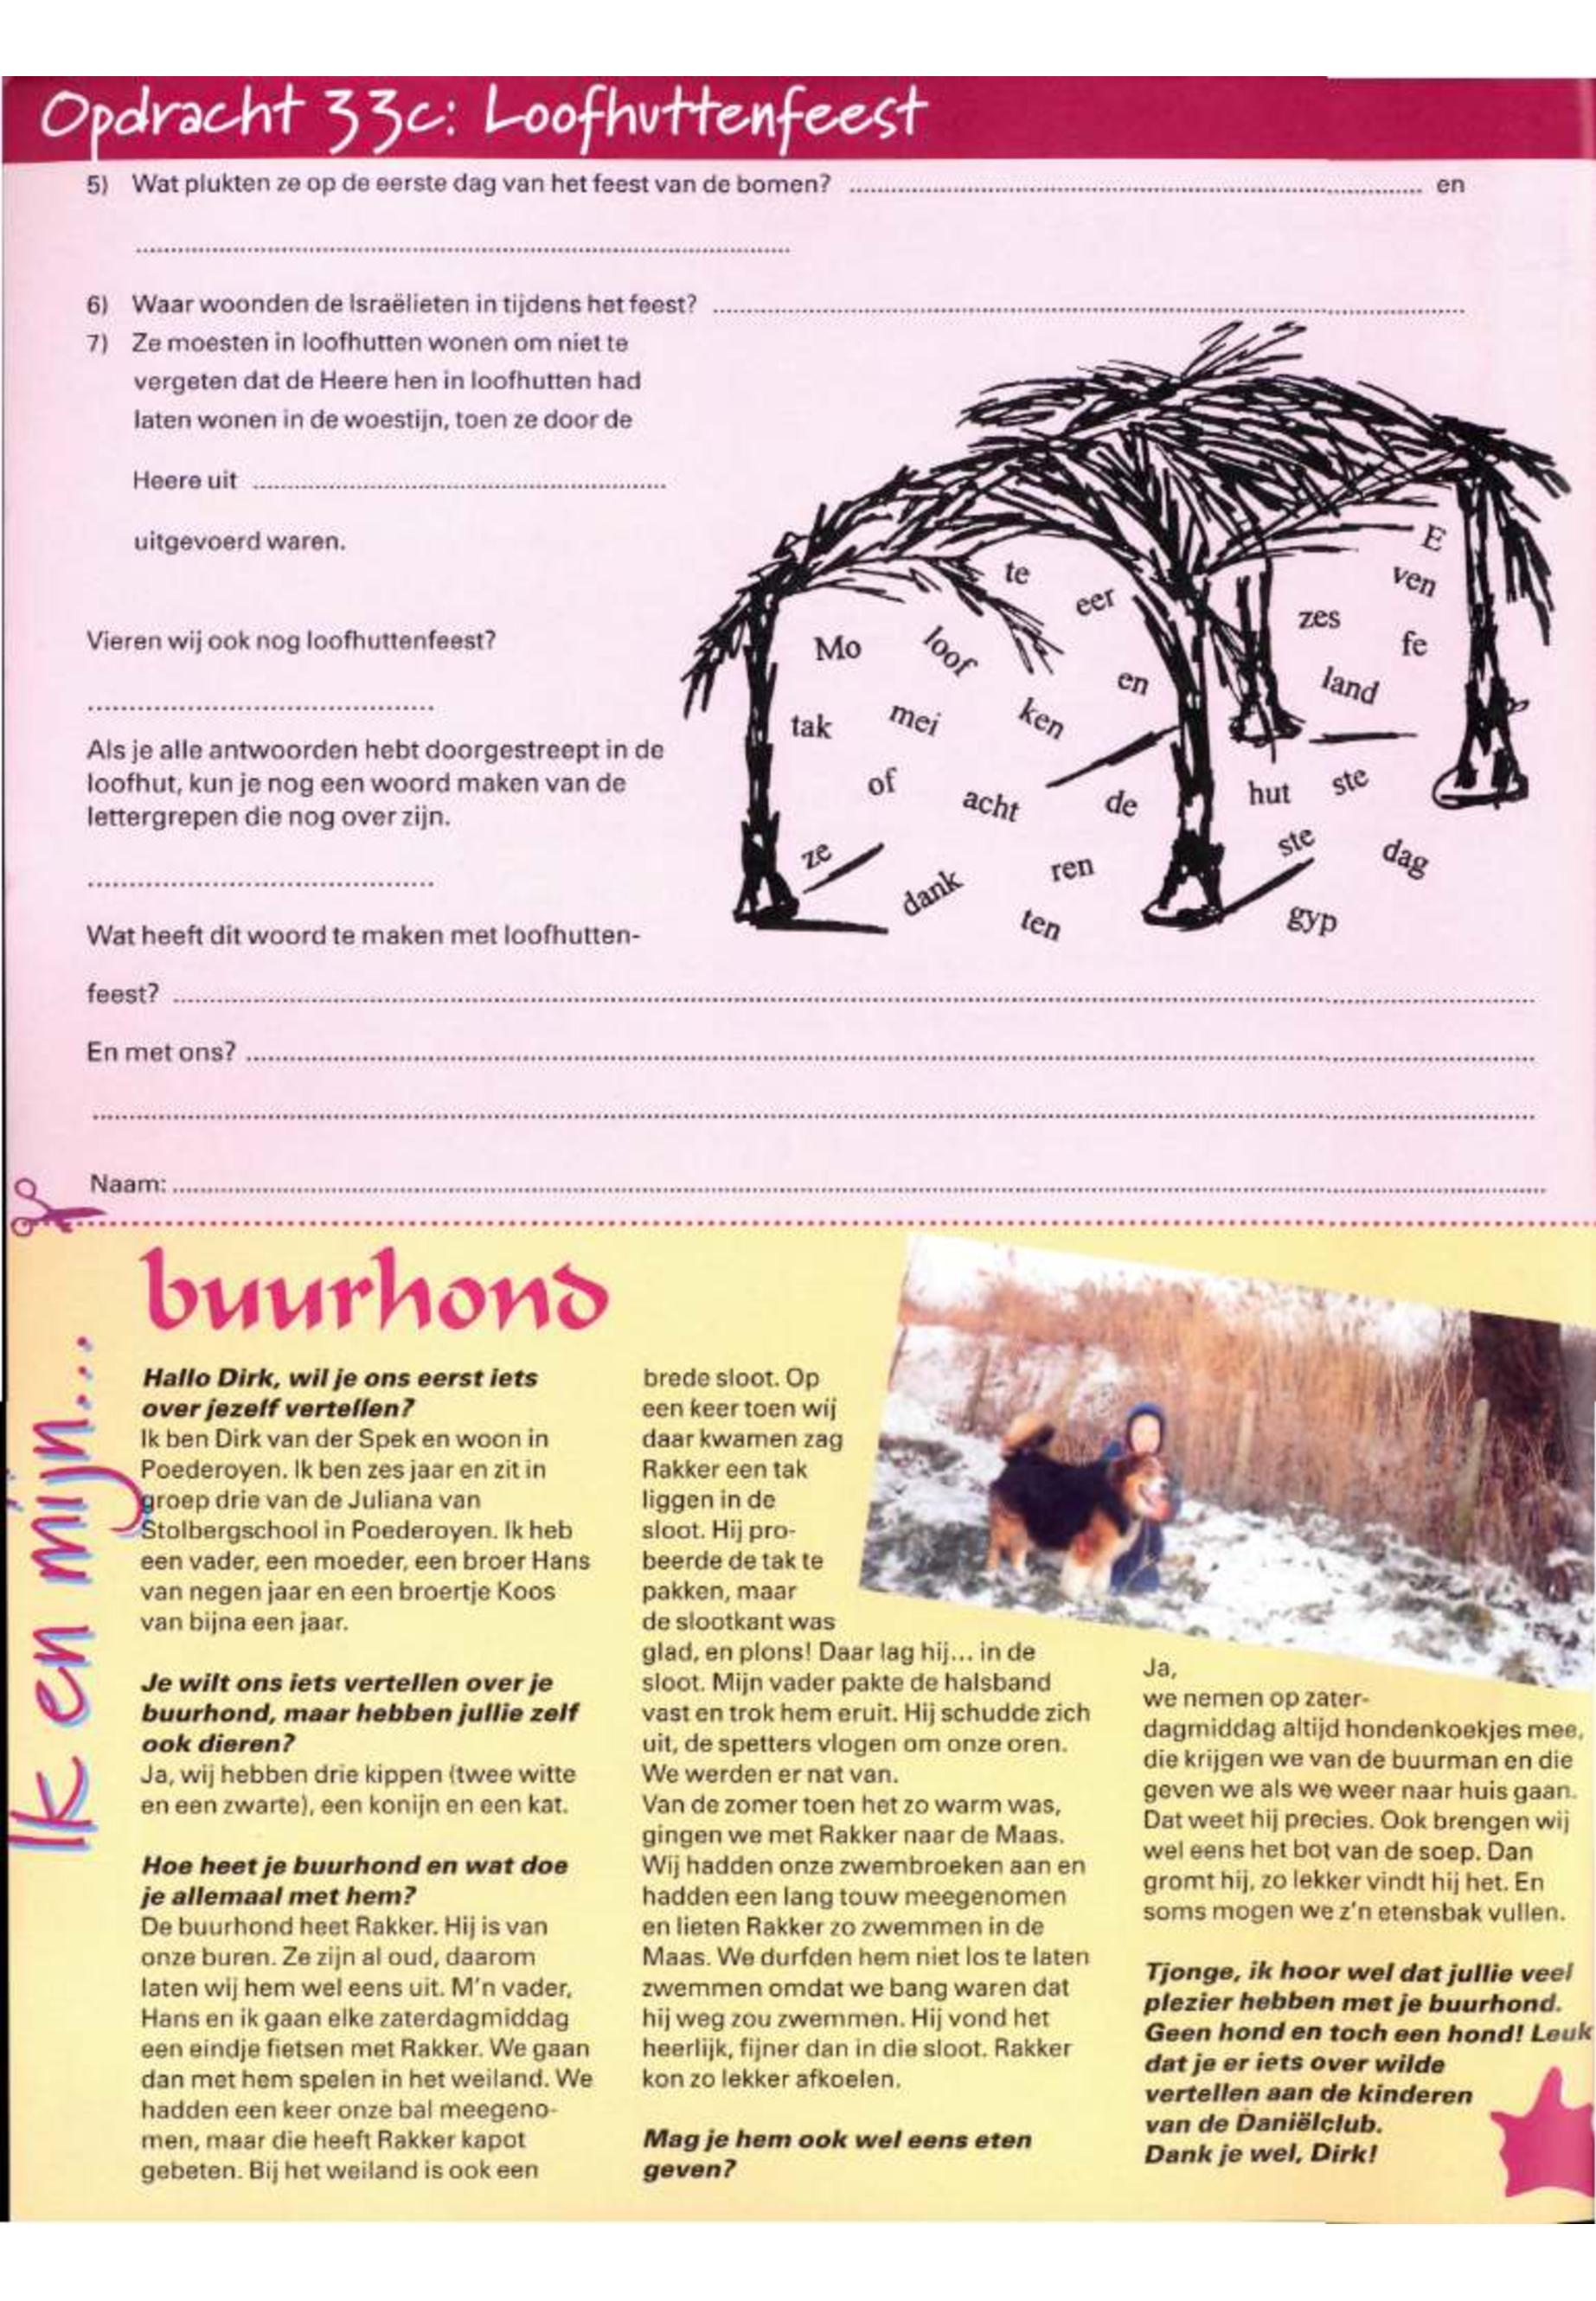 Opdracht 33c: Loofhuttenfeest
5) Wat plukten ze op de eerste dag van het feest van de bomen? ........ en
........
6) Waar woonden de Israëlieten in tijdens het feest? ........
7) Ze moesten in loofhutten wonen om niet te
vergeten dat de Heere hen in loofhutten had
laten wonen in de woestijn, toen ze door de
Heere uit ........
uitgevoerd waren.
Vieren wij ook nog loofhuttenfeest?
........
Als je alle antwoorden hebt doorgestreept in de
loofhut, kun je nog een woord maken van de
lettergrepen die nog over zijn.
........
Wat heeft dit woord te maken met loofhutten-
feest? ........
En met ons? ........
........
Naam: ........
E
te
ven
eer
zes
Mo
loof
fe
en
land
tak
mei
ken
of
acht
de
hut
ste
ze
ste
dag
dank
ren
ten
gyp
Ik en mijn...
buurhond
Hallo Dirk, wil je ons eerst iets
over jezelf vertellen?
Ik ben Dirk van der Spek en woon in
Poederoyen. Ik ben zes jaar en zit in
groep drie van de Juliana van
Stolbergschool in Poederoyen. Ik heb
een vader, een moeder, een broer Hans
van negen jaar en een broertje Koos
van bijna een jaar.
Je wilt ons iets vertellen over je
buurhond, maar hebben jullie zelf
ook dieren?
Ja, wij hebben drie kippen (twee witte
en een zwarte), een konijn en een kat.
Hoe heet je buurhond en wat doe
je allemaal met hem?
De buurhond heet Rakker. Hij is van
onze buren. Ze zijn al oud, daarom
laten wij hem wel eens uit. M'n vader,
Hans en ik gaan elke zaterdagmiddag
een eindje fietsen met Rakker. We gaan
dan met hem spelen in het weiland. We
hadden een keer onze bal meegeno-
men, maar die heeft Rakker kapot
gebeten. Bij het weiland is ook een
brede sloot. Op
een keer toen wij
daar kwamen zag
Rakker een tak
liggen in de
sloot. Hij pro-
beerde de tak te
pakken, maar
de slootkant was
glad, en plons! Daar lag hij... in de
sloot. Mijn vader pakte de halsband
vast en trok hem eruit. Hij schudde zich
uit, de spetters vlogen om onze oren.
We werden er nat van.
Van de zomer toen het zo warm was,
gingen we met Rakker naar de Maas.
Wij hadden onze zwembroeken aan en
hadden een lang touw meegenomen
en lieten Rakker zo zwemmen in de
Maas. We durfden hem niet los te laten
zwemmen omdat we bang waren dat
hij weg zou zwemmen. Hij vond het
heerlijk, fijner dan in die sloot. Rakker
kon zo lekker afkoelen.
Mag je hem ook wel eens eten
geven?
Ja,
we nemen op zater-
dagmiddag altijd hondenkoekjes mee,
die krijgen we van de buurman en die
geven we als we weer naar huis gaan.
Dat weet hij precies. Ook brengen wij
wel eens het bot van de soep. Dan
gromt hij, zo lekker vindt hij het. En
soms mogen we z'n etensbak vullen.
Tjonge, ik hoor wel dat jullie veel
plezier hebben met je buurhond.
Geen hond en toch een hond! Leuk
dat je er iets over wilde
vertellen aan de kinderen
van de Daniëlclub.
Dank je wel, Dirk!